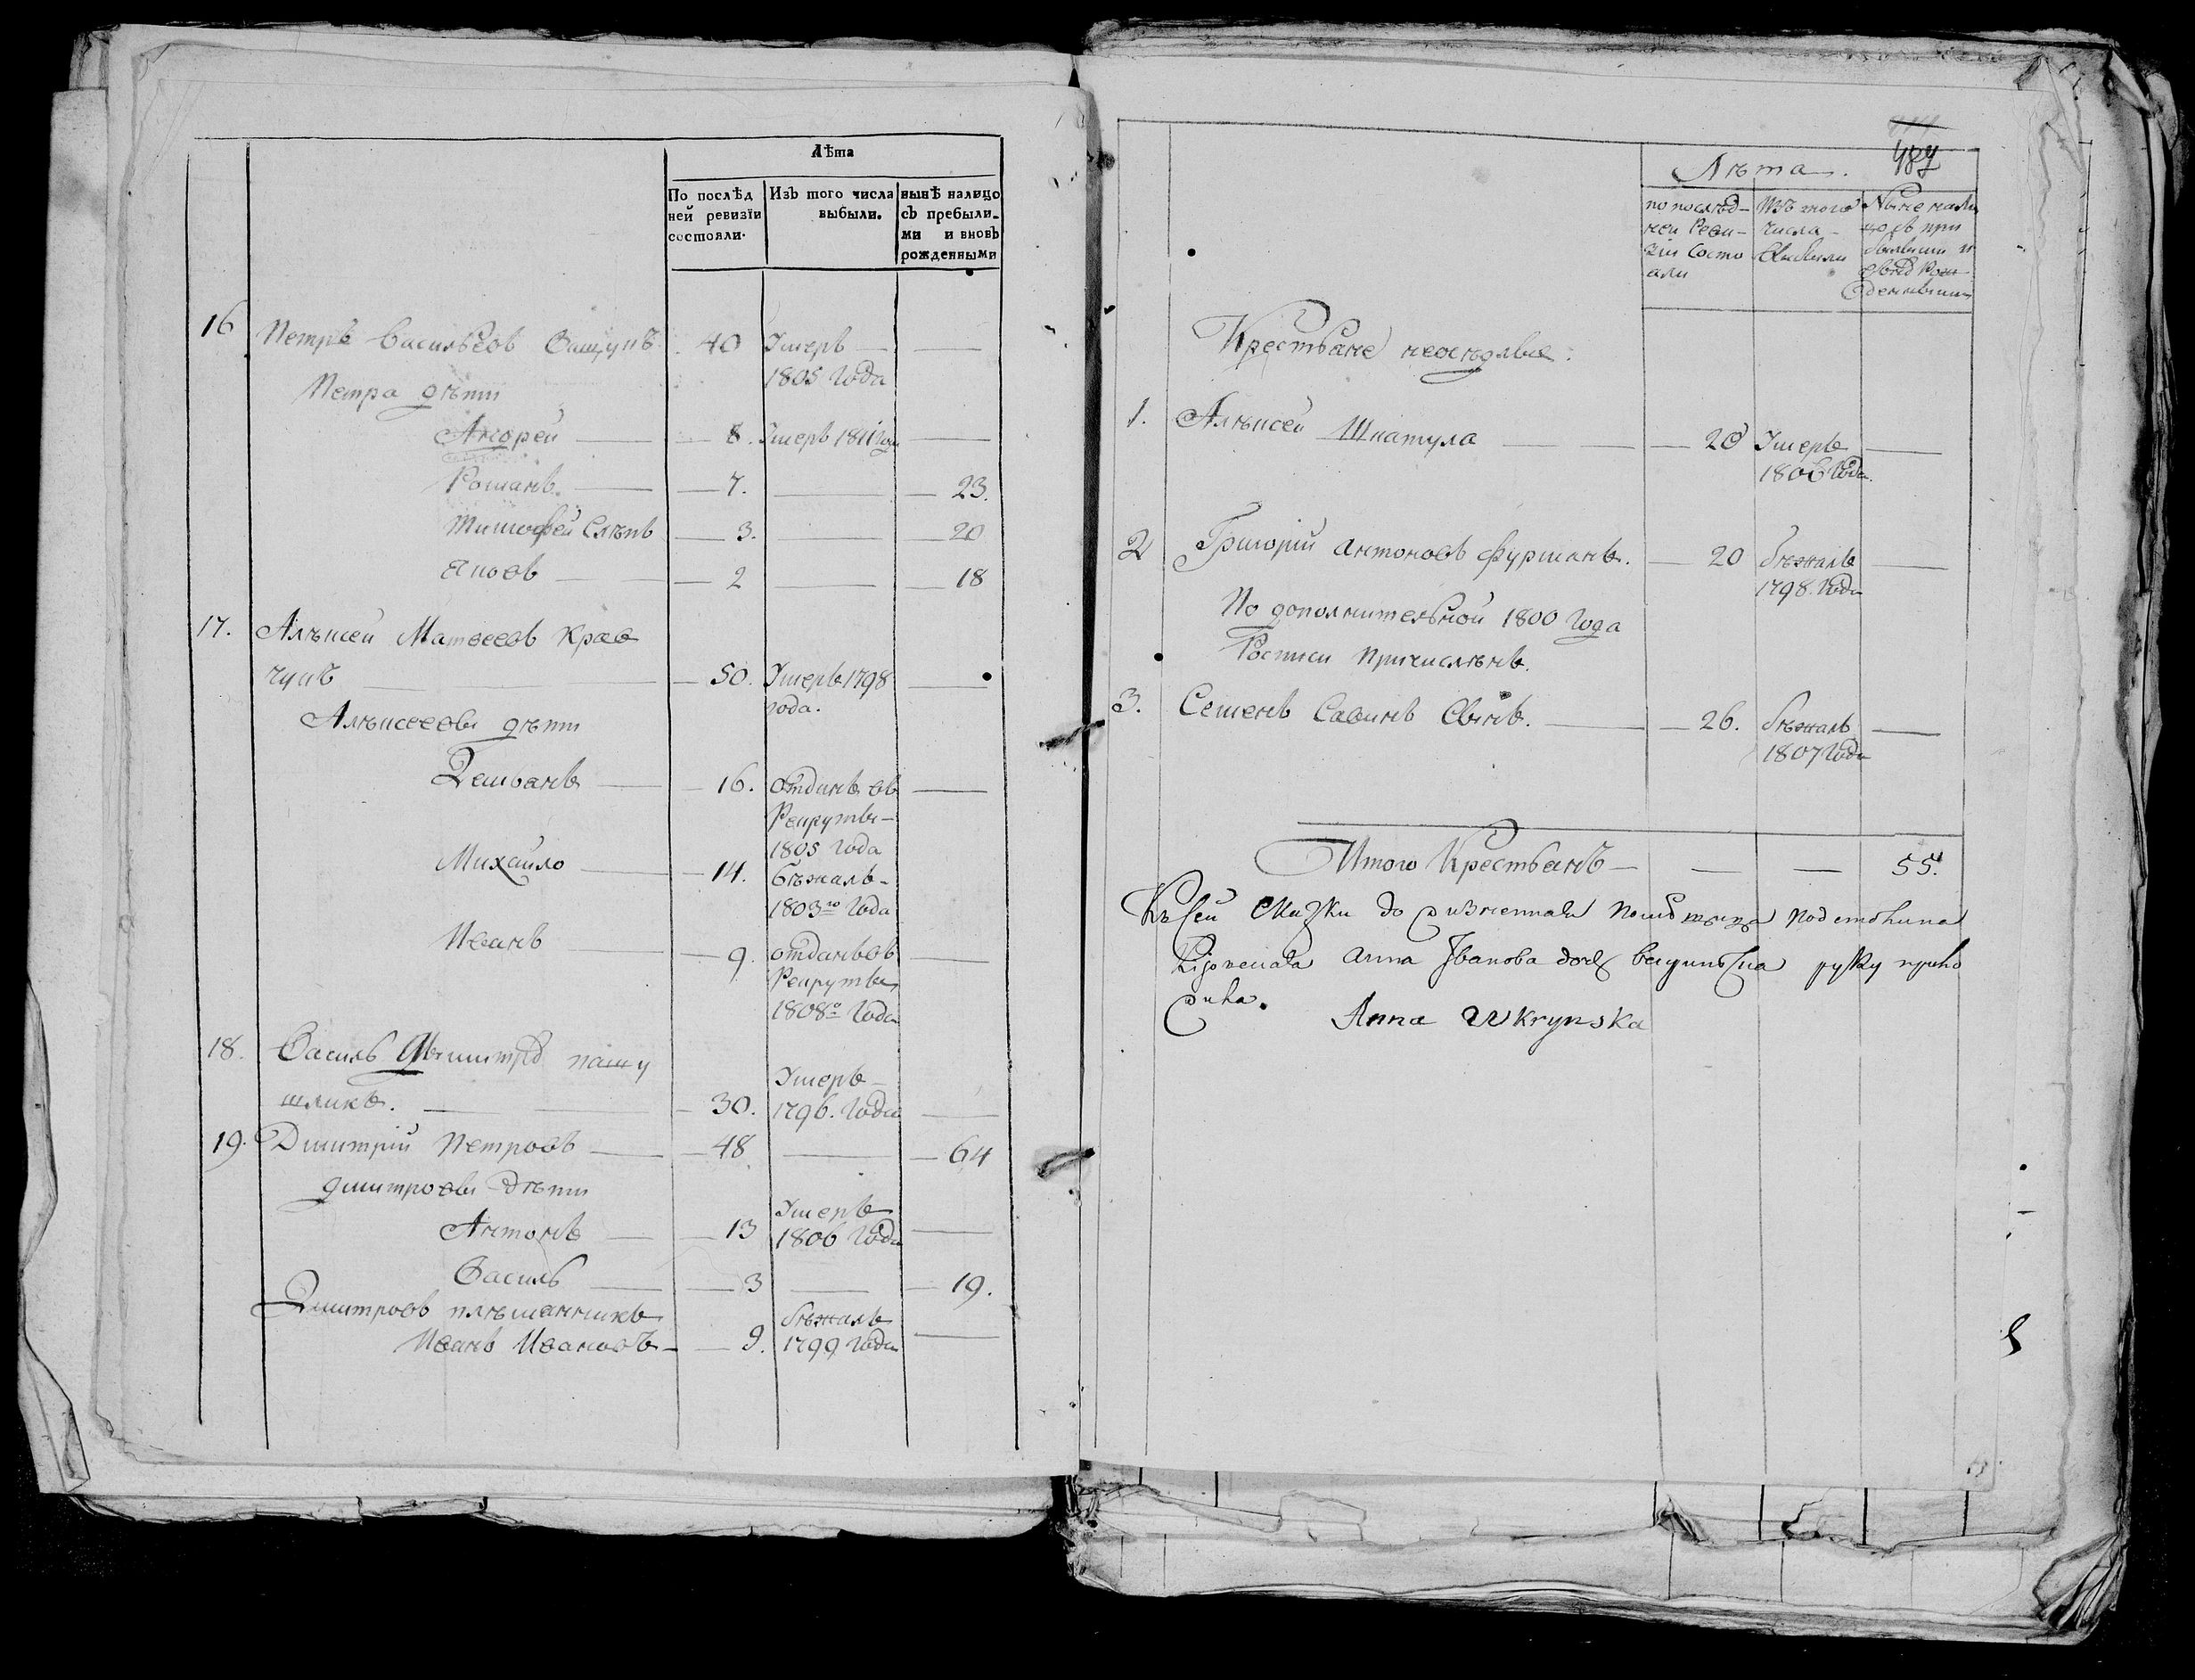 Лѣта
По послѣд
ней ревизїи
состояли.
Изъ того числа
выбыли.
нынѣ налицо
съ прибыли-
ми и вновь
рожденными
16 Петръ Васильевъ 40 Умеръ
1805 года
Петра дѣти
Андрей 8. Умеръ 1811 года
Романъ 7. 23.
Тимофей Слѣпъ 3. 20
Яковъ 2 18
17. Алѣксей Матвеевъ Крав
чукъ 50. Умеръ 1798
года.
Алѣксеевы дѣти
Демьянъ 16. отданъ въ
Рекруты
1805 года
Михайло 14. бѣжалъ
1803го года
Иванъ 9. отданъ въ
Рекруты
1808го года
18. Василь Дмитро пашу
шликъ. 30. Умеръ
1796. года
19. Дмитрій Петровъ 48 64
Дмитровы дѣти
Антонъ 13 Умеръ
1806 года
Василь 3 19.
Дмитровъ племянникъ
Иванъ Ивановъ 9. бѣжалъ
1799 года
487
Лѣта.
по послѣд-
ней Реви-
зіи состо
али
Изъ того
числа
выбыли
Ныне нали
цо съ при
былыми и
вновь Рож
денными
Крестьяне неоседлые.
1. Алѣксей Шкатула 20 Умеръ
1806 года.
2 Григорій Антоновъ Фурманъ. 20 бѣжалъ
1798. года
По дополнительной 1800 года
Росписи причислѣнъ.
3. Семенъ Савинъ 26. бѣжалъ
1807 года
Итого Крестьянъ 55.
Къ сей скаски
Анна Иванова дочь руку прило
жила.
Anna Wkrynska